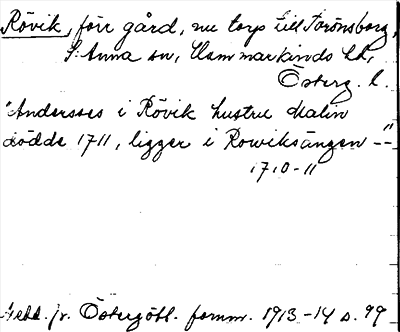 Rövik, förr gård, nu torp till Torönsborg,
S:t Anna sn, Hammarkinds hd,
Österg. l.
"Anderses i Rövik hustru Malin
dödde 1711, ligger i Rowiksängen --"
1710-11
Medd. fr. Östergötl. fornm. 1913-14 s. 99